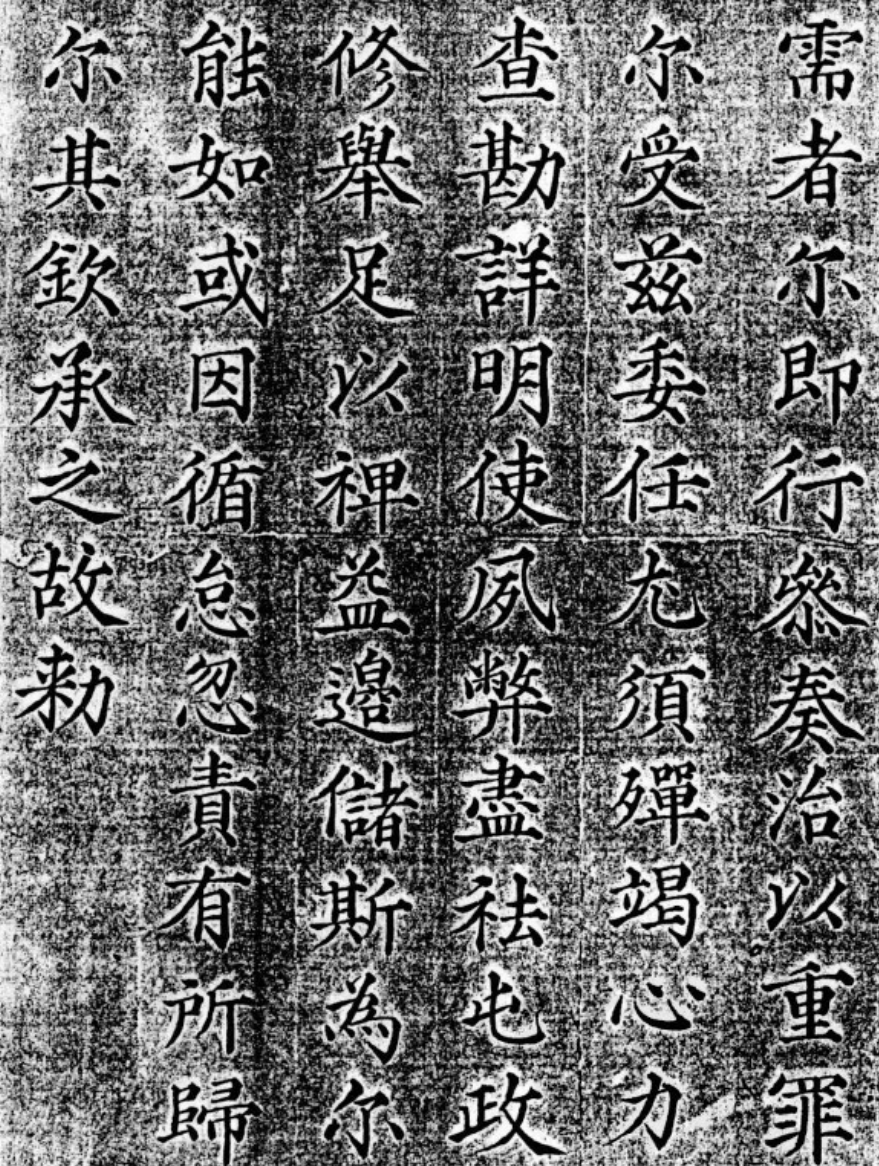 需者尔即行叅奏治以重罪
尔受茲委任尤須殫竭心力
查勘詳明使夙弊盡祛屯政
修舉足以裨益邊儲斯為尔
能如或因循怠忽責有所歸
尔其欽承之故勑